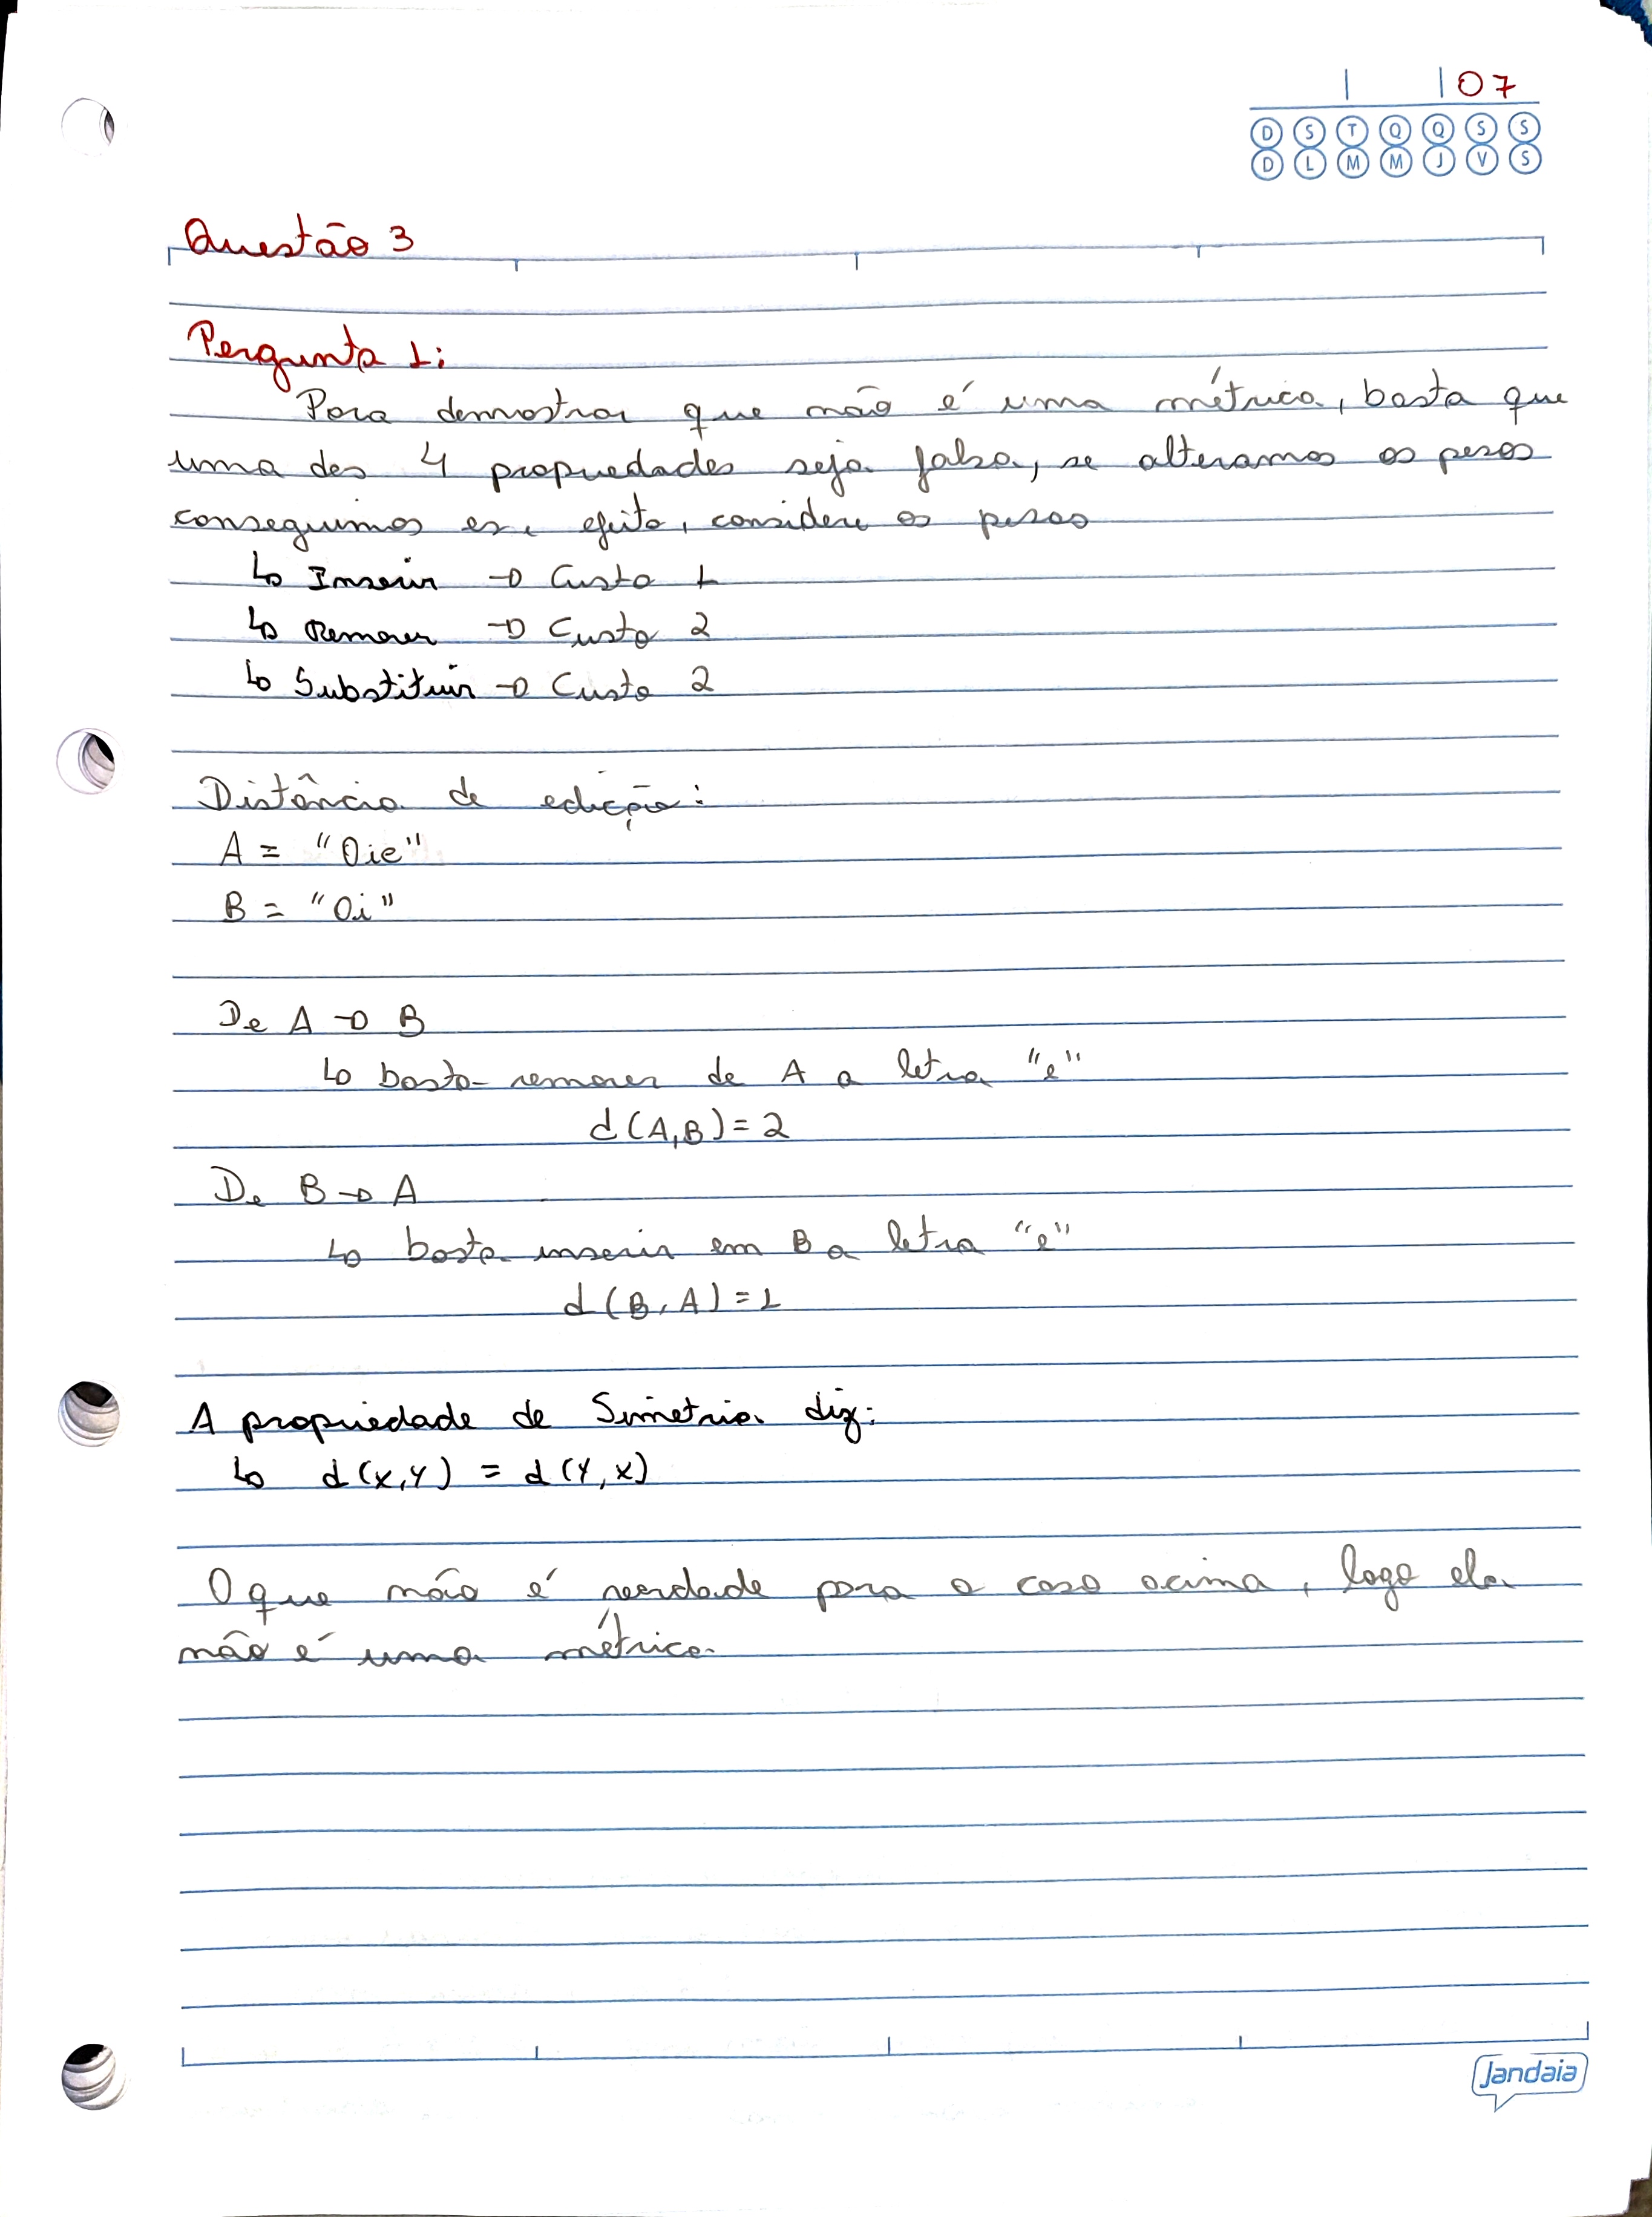 07
D S T Q Q S S
D L M M J V S
Questão 3
Pergunta 1:
Para demostrar que não é uma métrica, basta que
uma das 4 propriedades seja falsa, se alteramos os pesos
conseguimos esse efeito, considere os pesos
↳ Inserir → Custo 1
↳ Remover → Custo 2
↳ Substituir → Custo 2
Distância de edição:
A = "Oie"
B = "Oi"
De A → B
↳ basta remover de A a letra "e"
d(A,B)=2
De B → A
↳ basta inserir em B a letra "e"
d(B,A)=1
A propriedade de Simetria diz:
↳ d(x,y) = d(y,x)
O que não é verdade para o caso acima, logo ela
não é uma métrica.
Jandaia